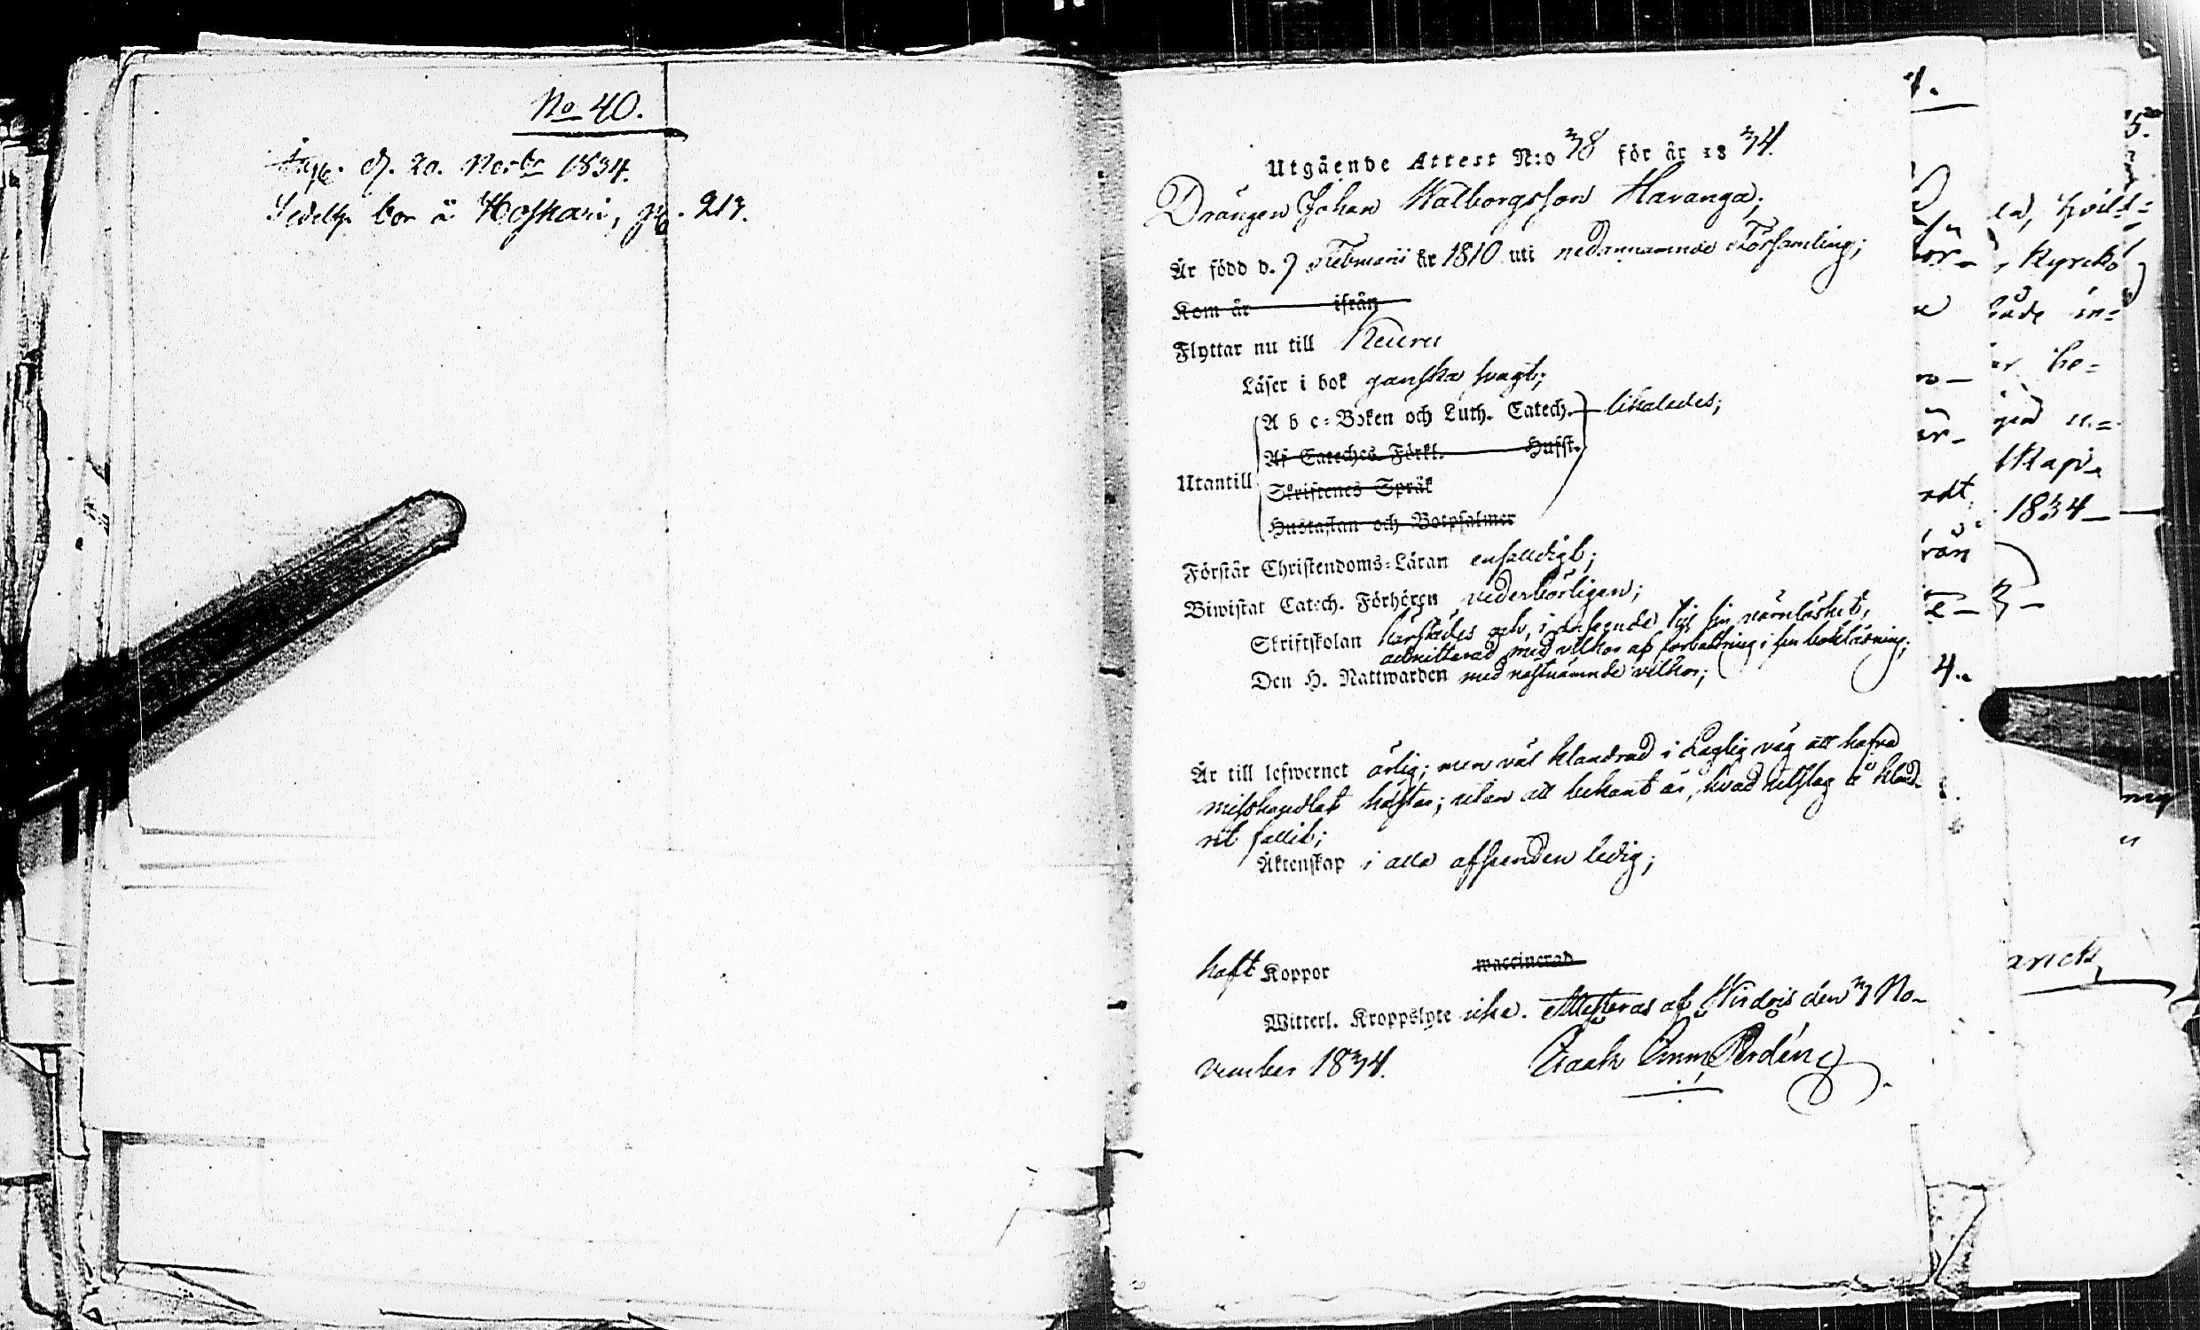 No 40.
d. 20. Novbr 1834.
bor å Koskari, pag. 213.
Utgående Attest N:o 38 för år 1834.
Drängen Johan Walborgsson Havanga;
Är född d. 7 Februarii år 1810 uti nedannämnde Församling;
Kom år ifrån
Flyttar nu till Keuru
Läser i bok ganska svagt;
A b c-Boken och Luth. Catech. likaledes;
Af Cateches. Förkl. Hufst.
Utantill
Skriftenes Språk
Hustaflan och Botpsalmer
Förstår Christendoms-Läran enfaldigt;
Biwistat Catech. Förhören vederbörligen;
Skriftskolan härstädes och, i anseende till sin
admitterad med vilkor af förbättring i sin bokläsning;
Den H. Nattwarden med nästnämnde vilkor;
Är till lefwernet ärlig; men väl klandrad i Laglig väg att hafva
misshandlat hästar; utan att bekant är, hvad utslag å kland-
ret fallit;
Äktenskap i alla afseenden ledig;
haft Koppor waccinerad
Witterl. Kroppslyte icke. Attesteras af Wirdois den 3 No-
vember 1834. Isaak Emm. Perdén
1.
5.
en, hvilk=
Kyrko
både in=
be=
1834
rån
4.